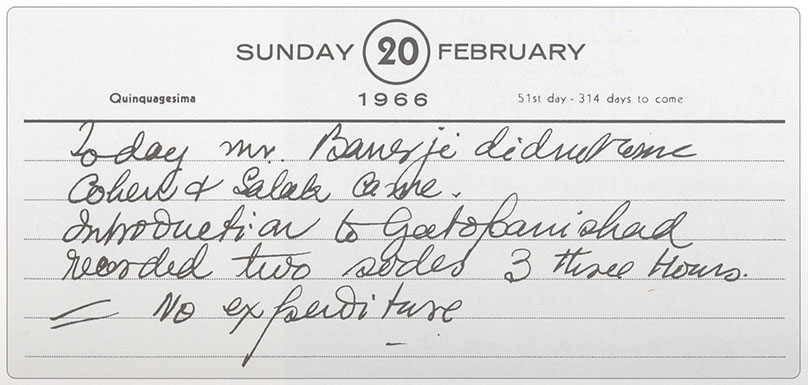 SUNDAY 20 FEBRUARY
Quinquagesima 1966 51st day - 314 days to come
Today mr. Banerji did not come
Cohen & Salak came.
Introduction to Geetopanishad
recorded two sodes 3 three hours.
= No expenditure